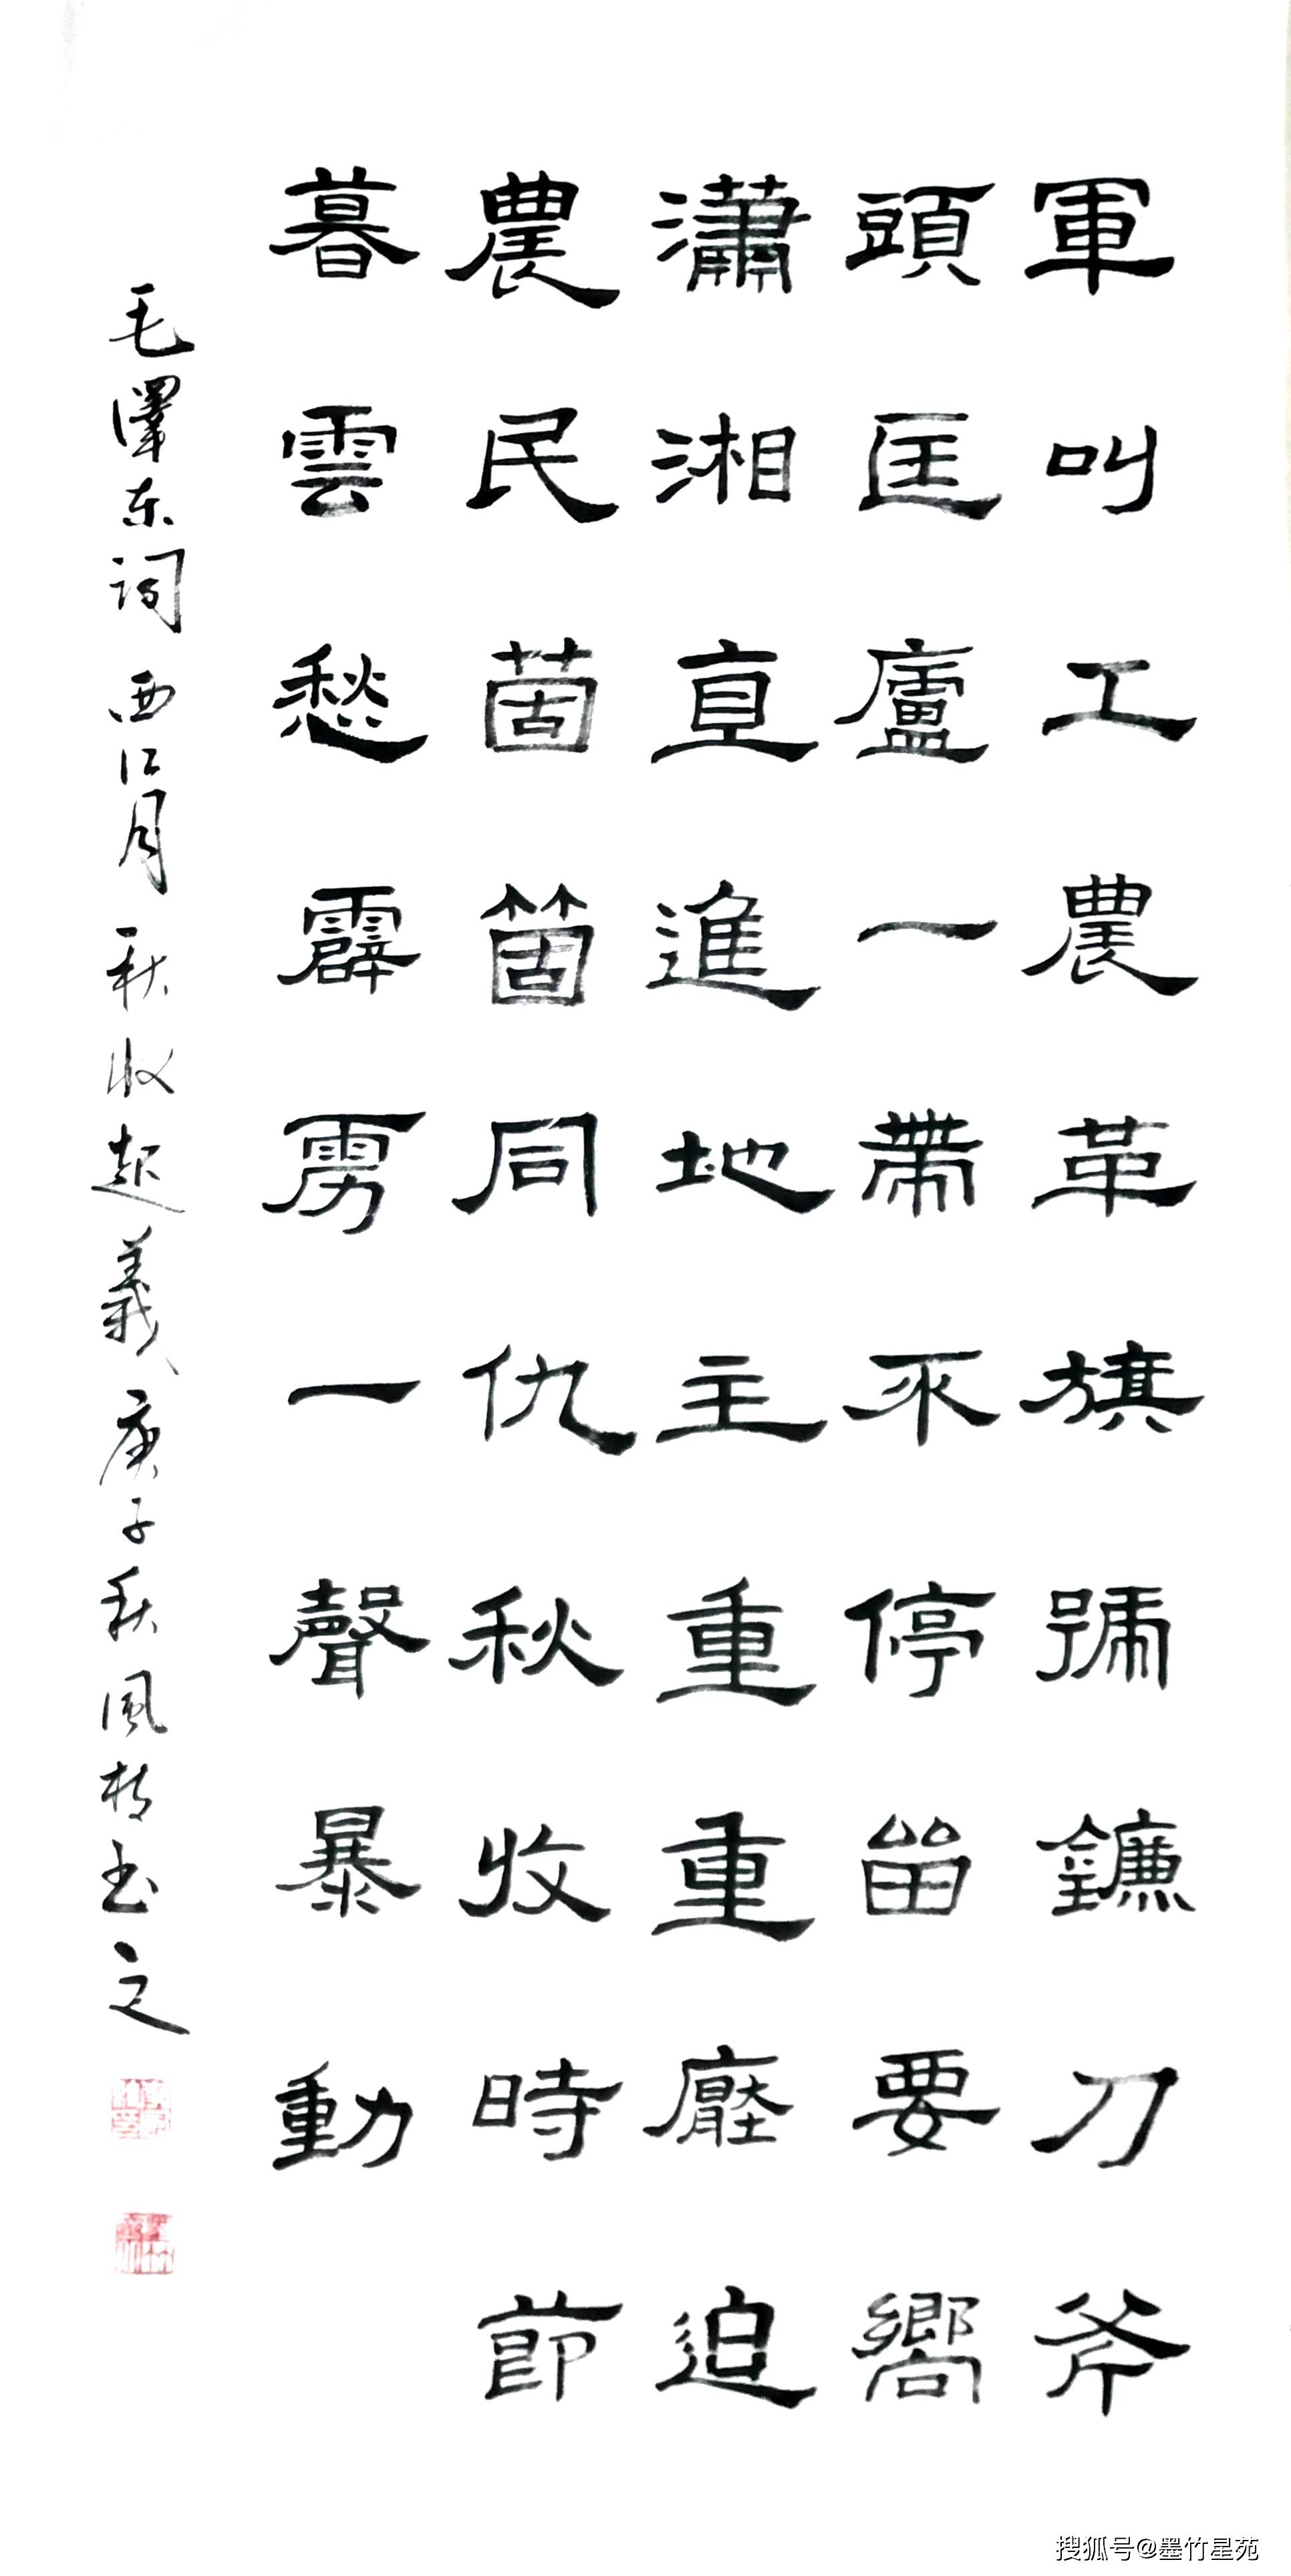 軍叫工農革旗號鐮刀斧
頭匡廬一帶不停留要嚮
瀟湘直進地主重重壓迫
農民箇箇同仇秋收時節
暮雲愁霹靂一聲暴動
毛澤东词西江月秋收起義庚子秋風枝书之
搜狐号@墨竹星苑